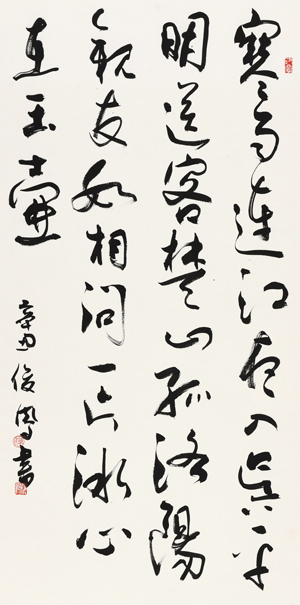 寒雨連江夜入吳平
明送客楚山孤洛陽
親友如相問一片冰心
在玉壺
辛丑俊書